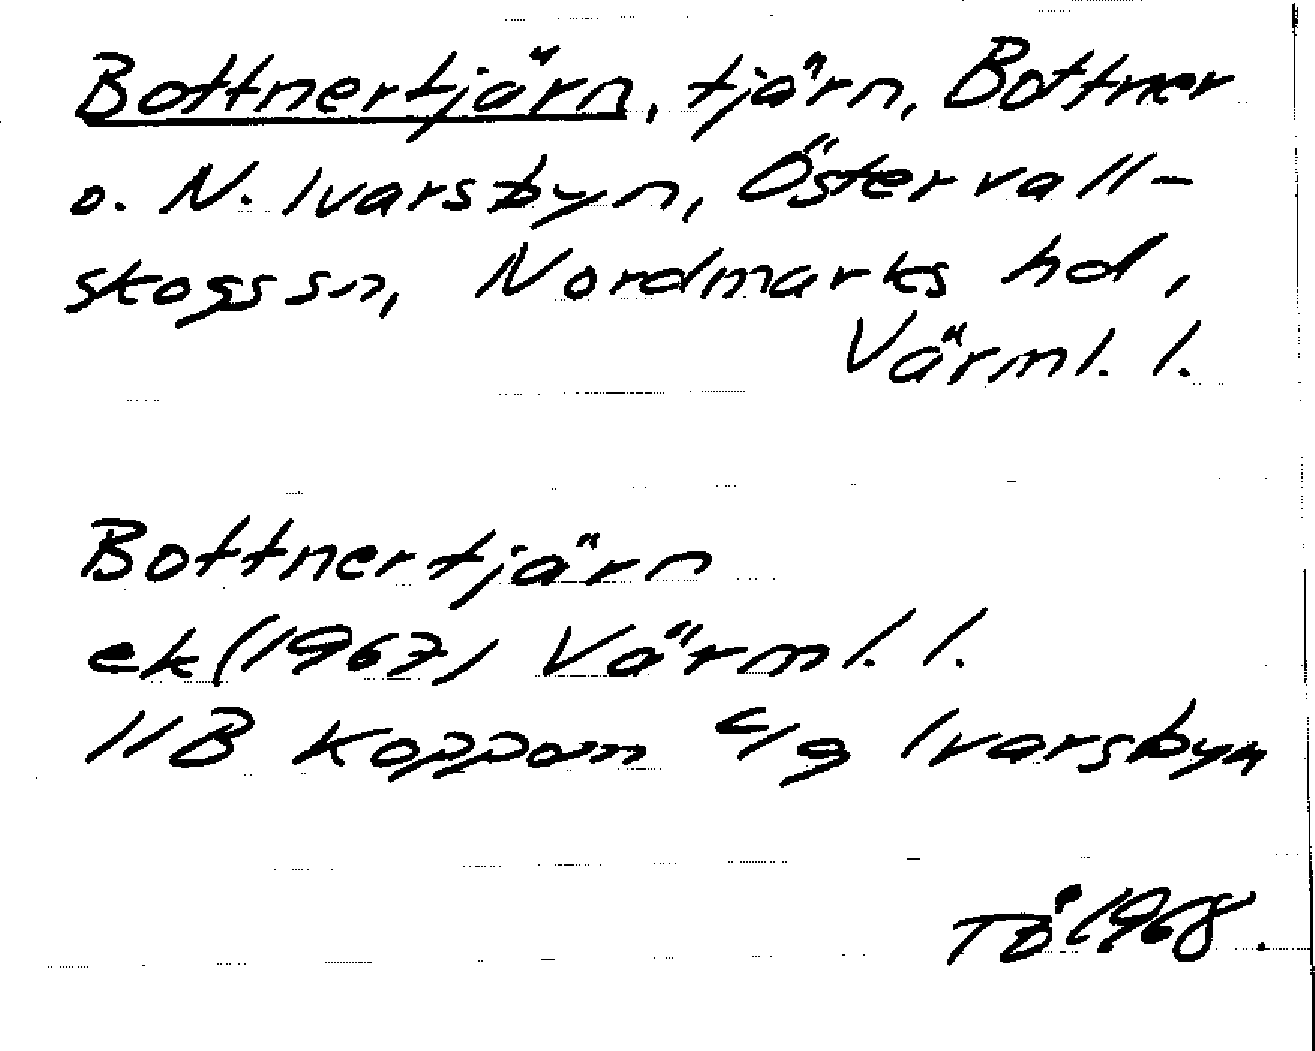 Bottnertjärn, tjärn, Bottner
o. N. Ivarsbyn, Östervall-
skogs sn, Nordmarks hd,
Värml. l.
Bottnertjärn
ek (1967) Värml. l.
11B Koppom c/g Ivarsbyn
TÖ 1968.